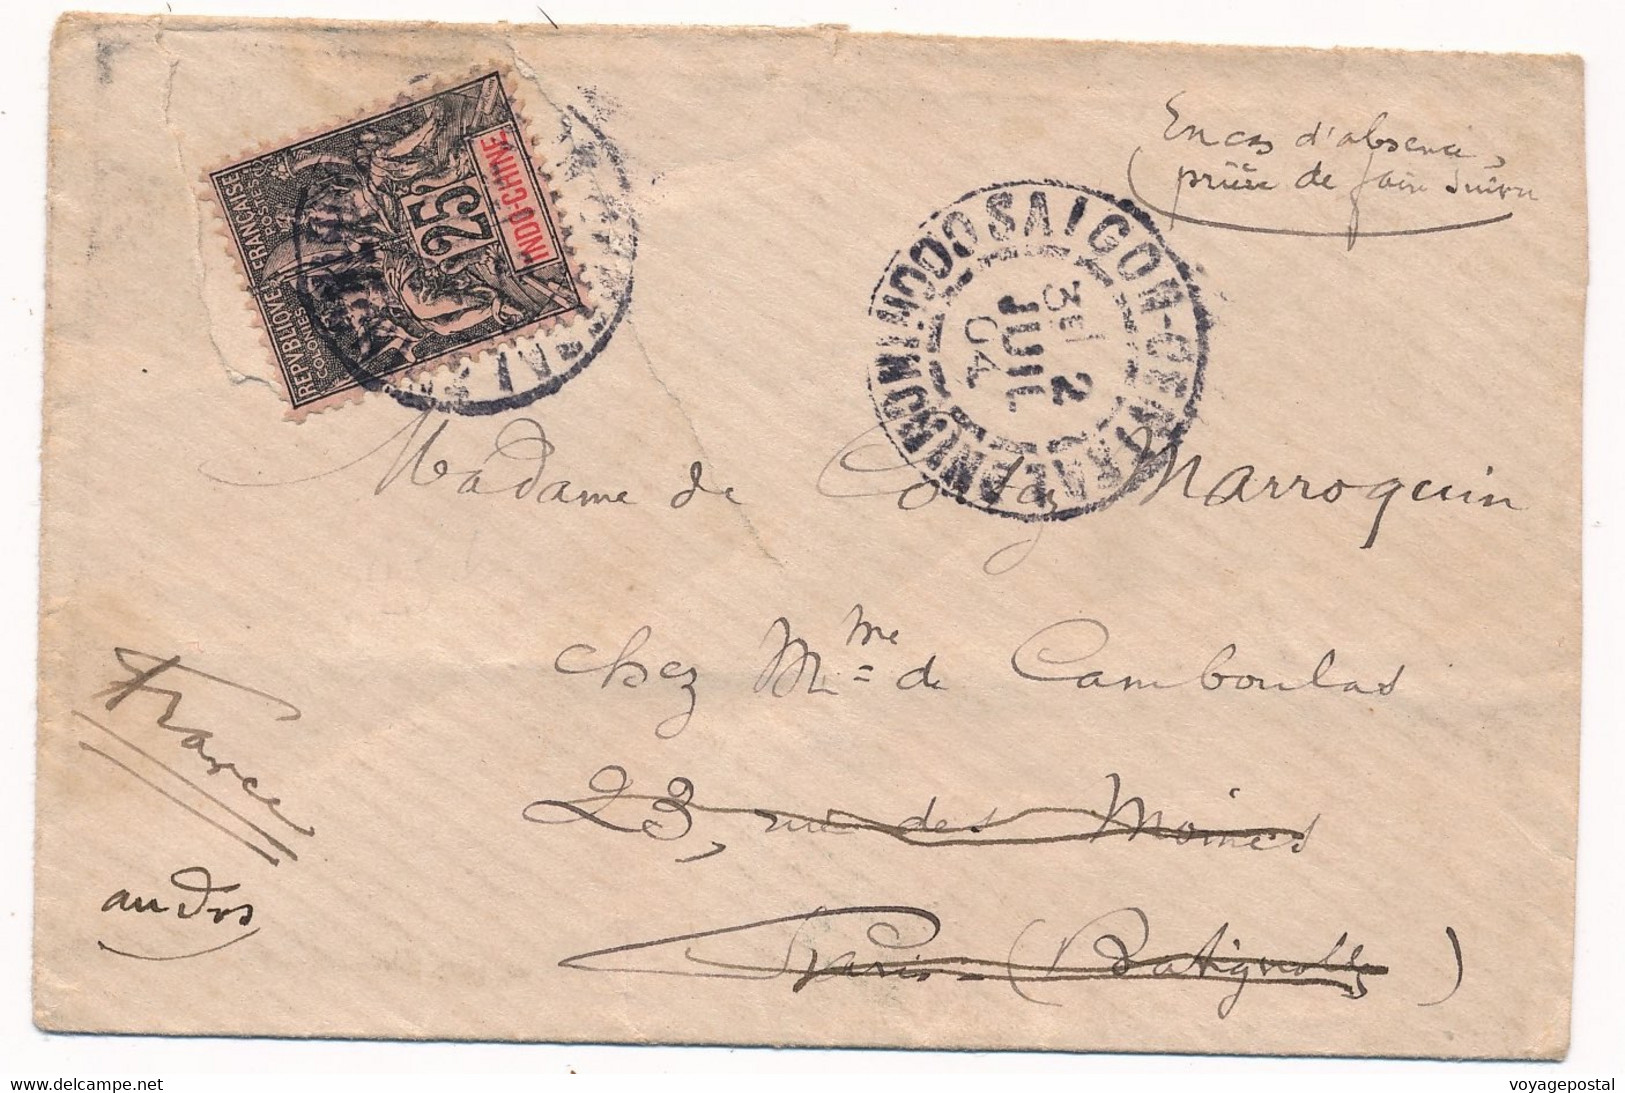 En cas d'absence,
prière de faire suivre
REPVBLIQVE FRANÇAISE
COLONIES POSTES
25
INDO-CHINE
SAIGON-CENTRAL
3E/ 2
JUIL
04
COCHINCHINE
Madame de Marroquin
chez Mme de Camboulas
23, rue des Moines
Paris - (Batignolles)
France
au dos
voyagepostal